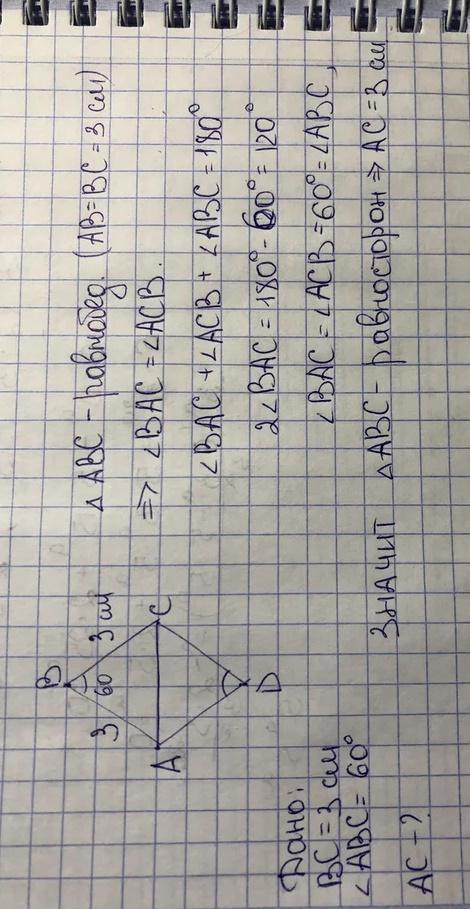 B
3 60 3 см
A C
D
Дано:
BC = 3 см
∠ABC = 60°
AC - ?
△ ABC - равнобед. (AB = BC = 3 см)
=> ∠BAC = ∠ACB.
∠BAC + ∠ACB + ∠ABC = 180°
2∠BAC = 180° - 60° = 120°
∠BAC = ∠ACB = 60° = ∠ABC,
значит △ABC - равносторон => AC = 3 см